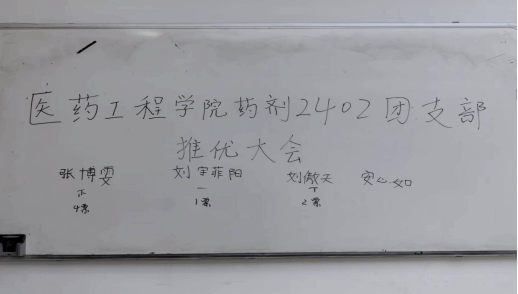 医药工程学院药剂2402团支部
推优大会
张博雯 刘宇菲阳 刘傲天 安心如
4票 1票 2票